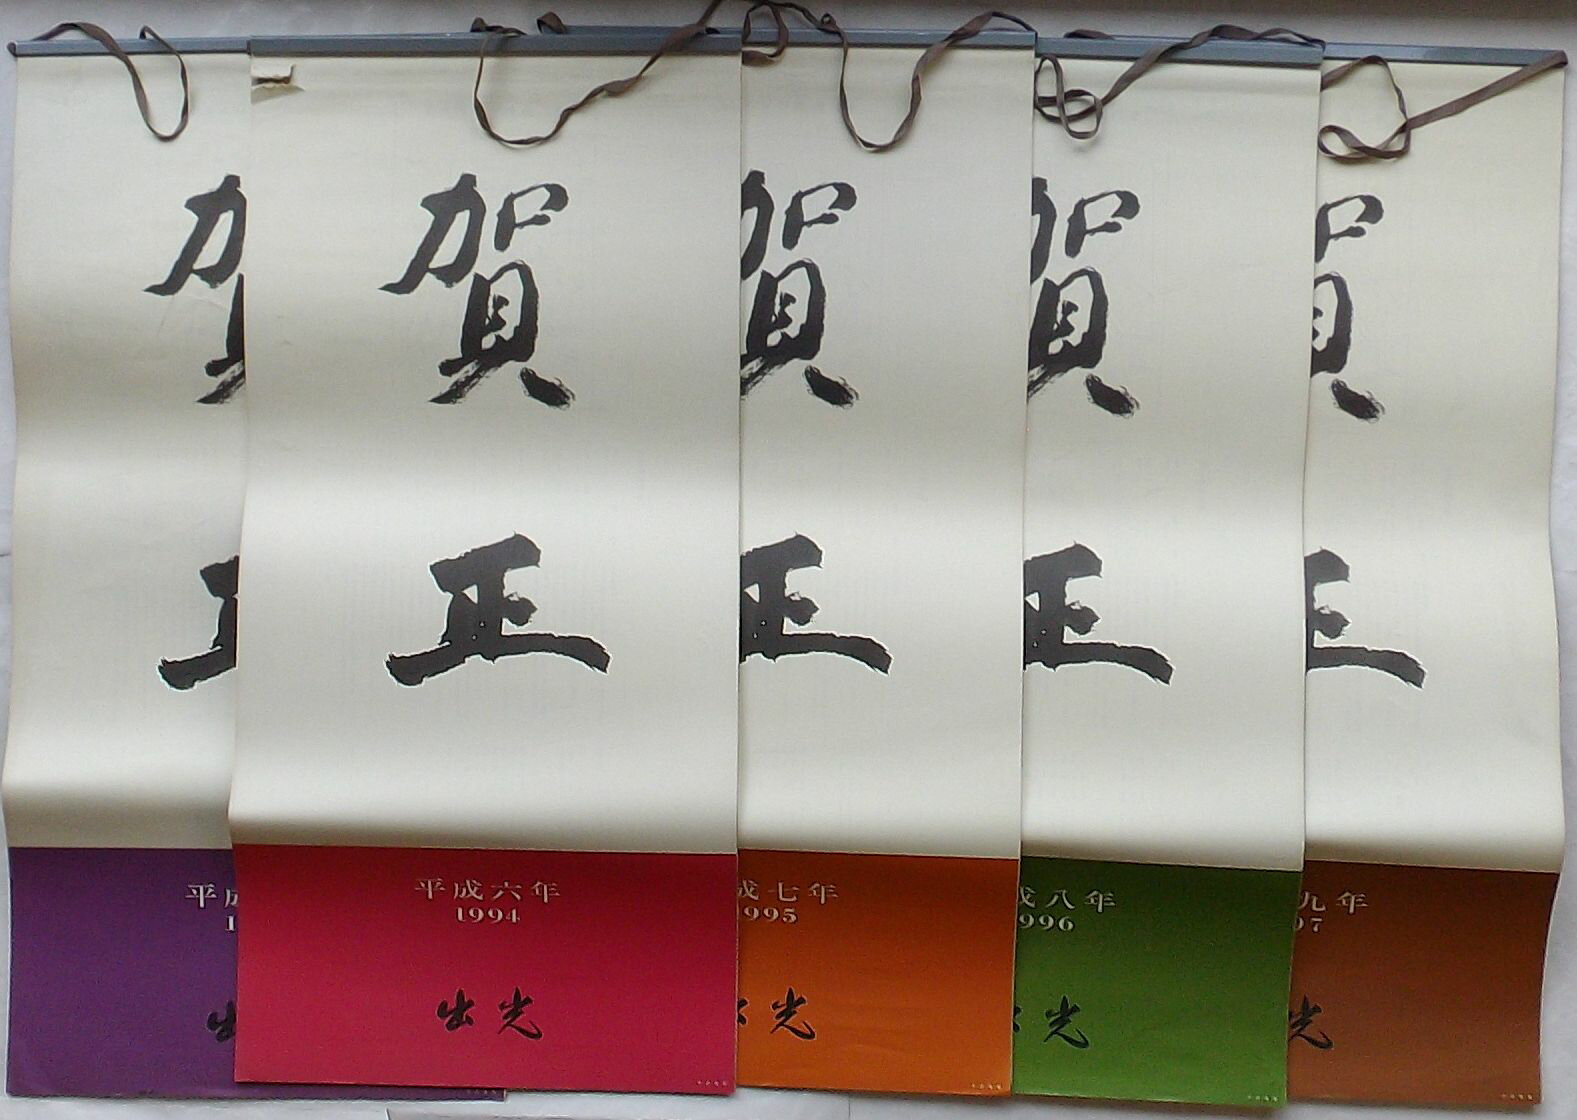 賀
正
平成
1
出
賀
正
平成六年
1994
出光
賀
正
成七年
1995
光
賀
正
成八年
996
光
賀
正
九年
97
光